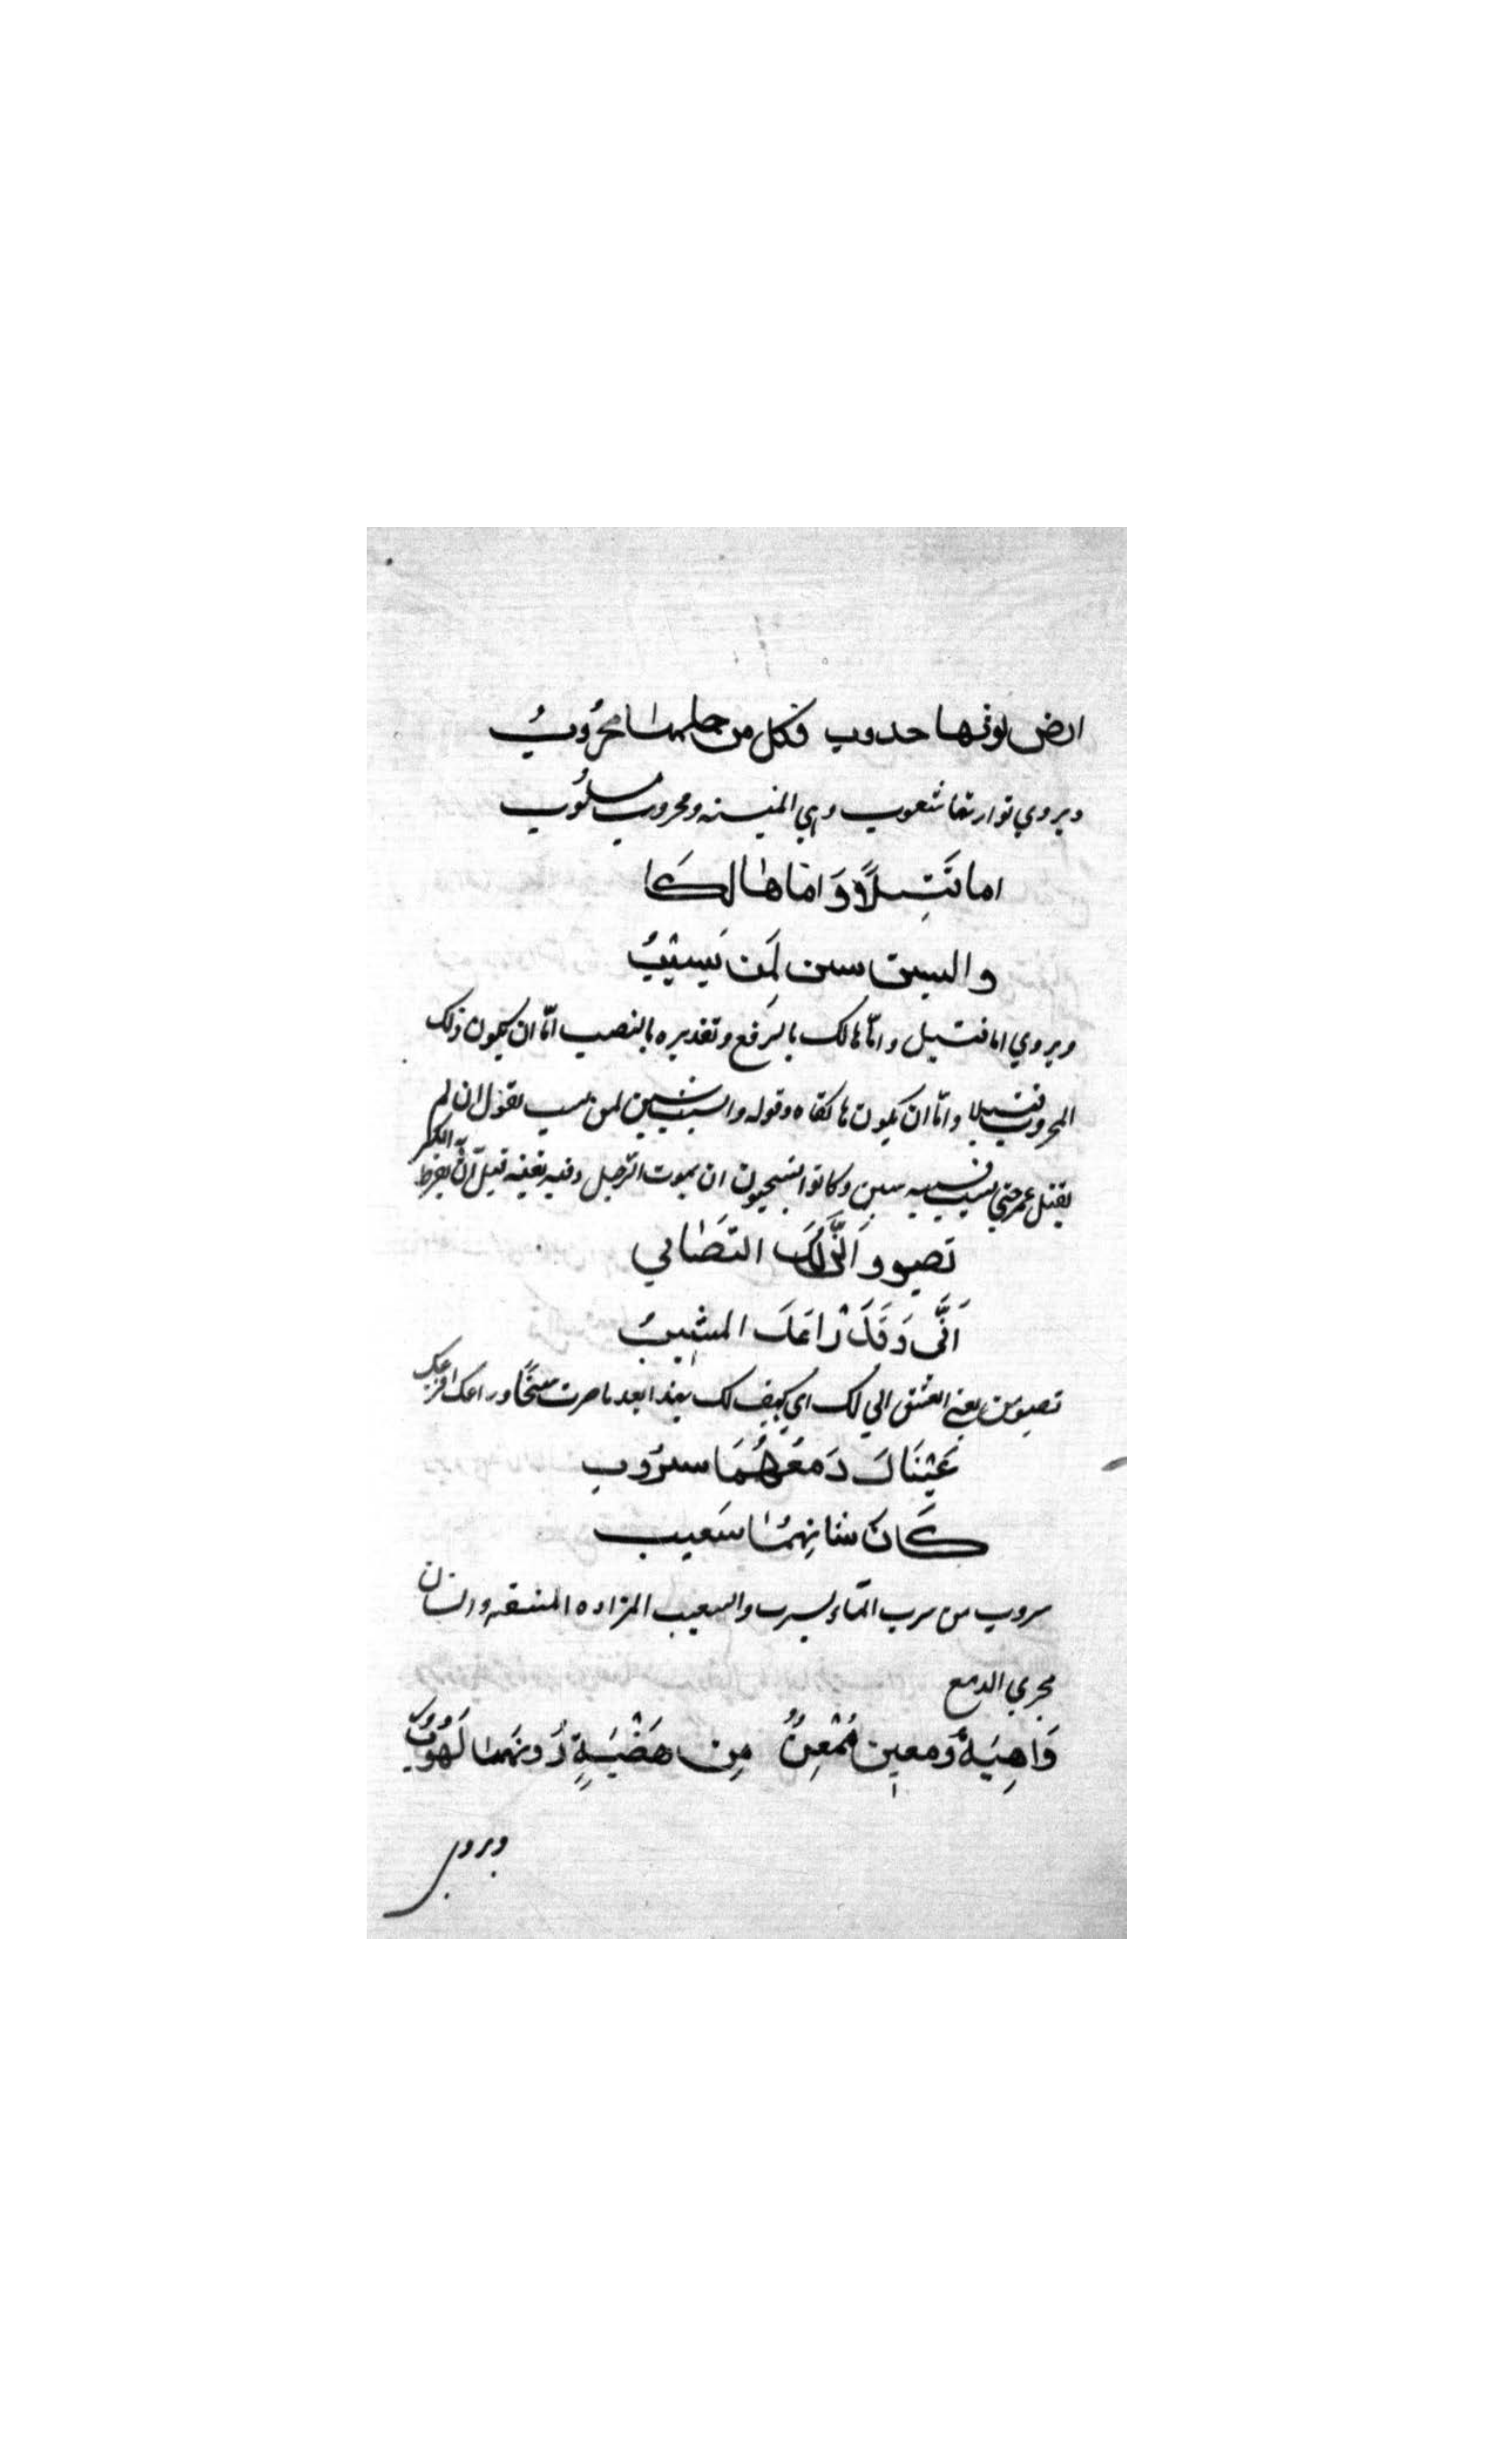 ارض توثها حدوب فكل من حلها محروبُ
ويروي توارثها شعوب وهي المنيه ومحروب مسلُوب
اما قَتِيلاً وَاما هالكا
والشيب شين لمَن يَشيْبُ
ويروي اما قتيل وامّا هالك بالرفع وتقديره بالنصب امّا ان يكون ذلك
المحروب قتيلا وامّا ان يكون هالكا وقوله والشيب شين لمن يشيب يقول ان لم
يقتل عمر حتي يشيب فشيبه شين وكانوا يستحبون ان يموت الرجل وفيه بقيه قبل ان يفرط به الكبر
تصبو وَاَنَّى لَكَ التصَابي
اَنَّى وَقَدْ رَاعَكَ المشِيبُ
تصبو من يعني العشق اني لك اي كيف لك بهذا بعد ما صرت شيخًا وراعك افزعك
عَيْنَاكَ دَمعُهُمَا سرُوب
كَان شانِيهمَا شَعيب
سروب من سرب الماء يسرب والشعيب المزاده المنشقه والشان
مجري الدمع
وَاهِيَةٌ وَمعِين مُمْعِنٌ مِن هَضْبَةٍ دُونهَا لَهُوُبُ
ويروي